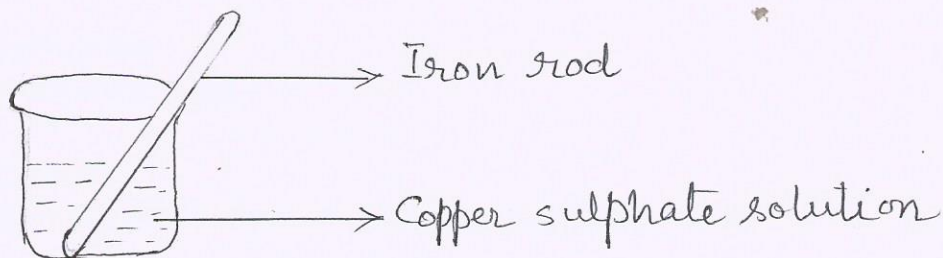 Iron rod
Copper sulphate solution